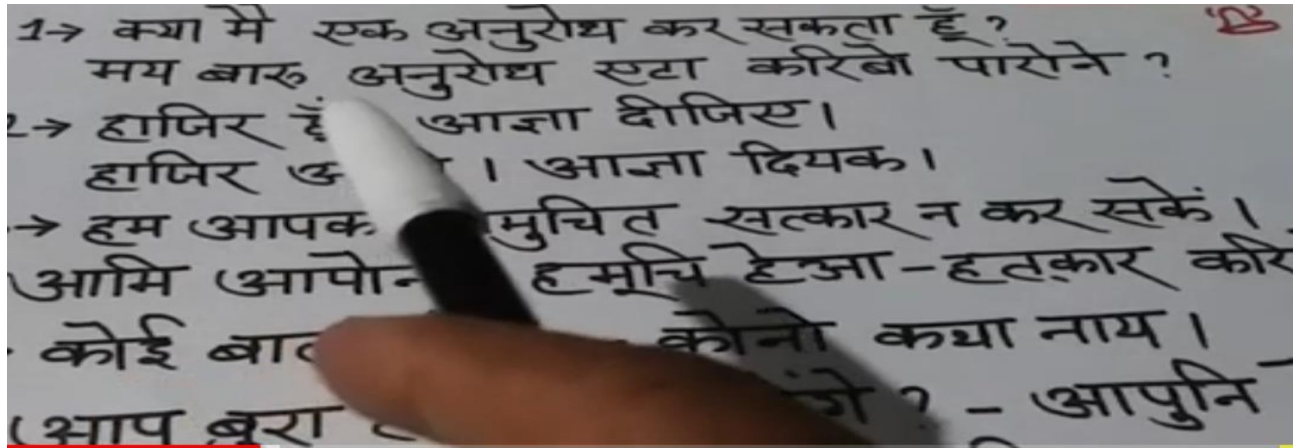 1→ क्या मै एक अनुरोध कर सकता हूँ ?
मय बारु अनुरोध एटा करिबो पारोने ?
2→ हाजिर हूँ आज्ञा दीजिए।
हाजिर । आज्ञा दियक।
→ हम न कर सकें। सत्कार
आमि हमूचि हेआ-हत्कार करि
कोई कोनो कथा नाय।
आप बुरा ? - आपुनि